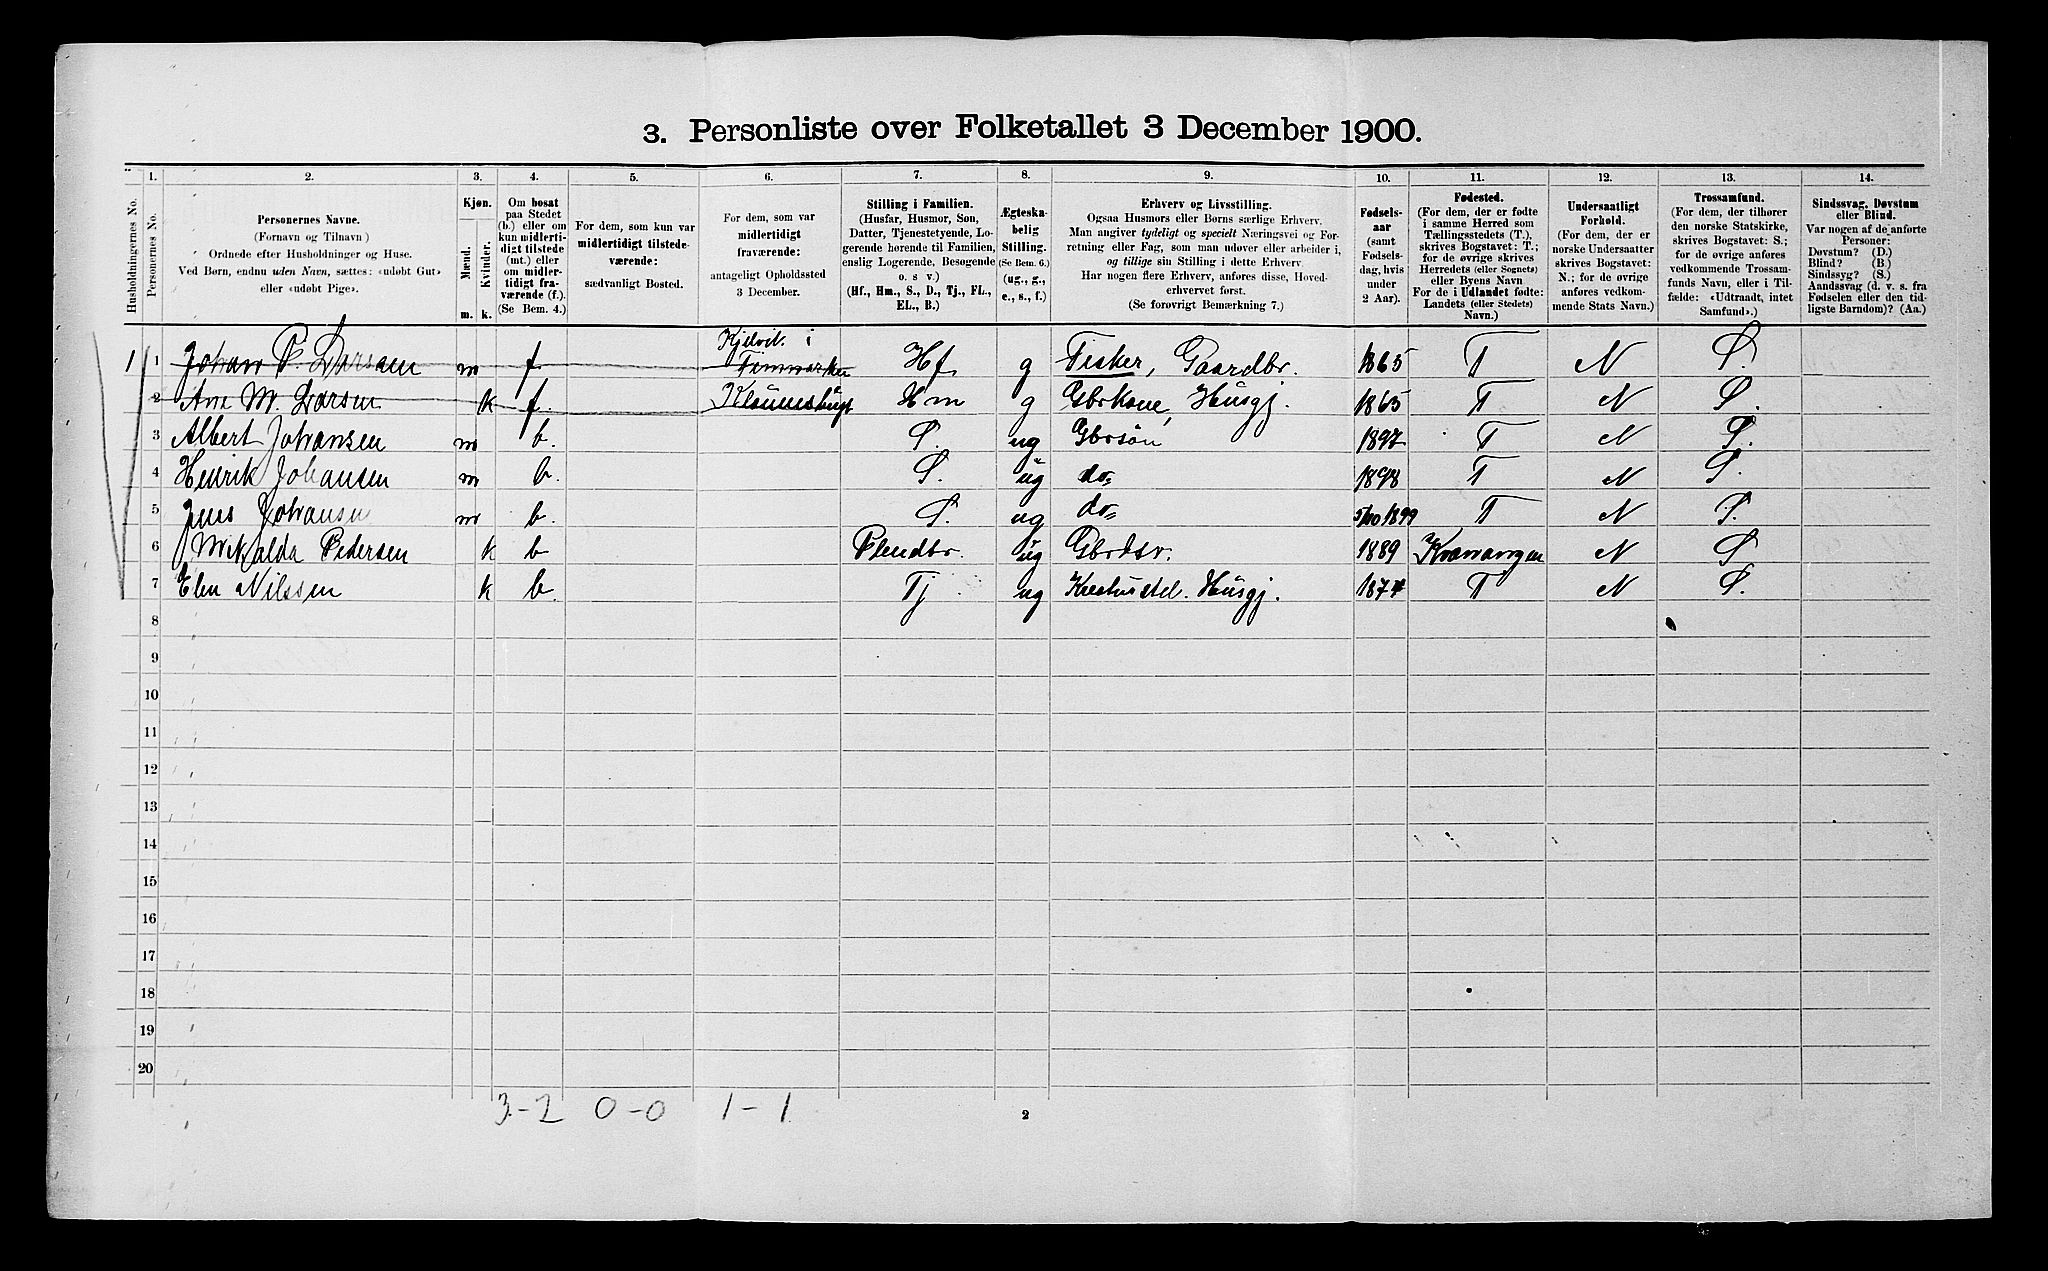 3. Personliste over Folketallet 3 December 1900.
Husholdningernes No.
1. Personernes No.
2. Personernes Navne.
(Fornavn og Tilnavn)
Ordnede efter Husholdninger og Huse.
Ved Børn, endnu uden Navn, sættes: «udøbt Gut»
eller «udøbt Pige».
3. Kjøn.
Mænd. Kvinder.
m. k.
4. Om bosat
paa Stedet
(b.) eller om
kun midlerti-
digt tilstede
(mt.) eller
om midler-
tidigt fra-
værende (f.).
(Se Bem. 4.)
5. For dem, som kun var
midlertidigt tilstede-
værende:
sædvanligt Bosted.
6. For dem, som var
midlertidigt
fraværende:
antageligt Opholdssted
3 December.
7. Stilling i Familien.
(Husfar, Husmor, Søn,
Datter, Tjenestetyende, Lo-
gerende hørende til Familien,
enslig Logerende, Besøgende
o. s v.)
(Hf., Hm., S., D., Tj., FL.,
EL., B.)
8. Ægteska-
belig
Stilling.
(Se Bem. 6.)
(ug., g.,
e., s., f.)
9. Erhverv og Livsstilling.
Ogsaa Husmors eller Børns særlige Erhverv.
Man angiver tydeligt og specielt Næringsvei og For-
retning eller Fag, som man udøver eller arbeider i,
og tillige sin Stilling i dette Erhverv.
Har nogen flere Erhverv, anføres disse, Hoved-
erhvervet først.
(Se forøvrigt Bemærkning 7.)
10. Fødsels-
aar
(samt
Fødsels-
dag, hvis
under
2 Aar).
11. Fødested.
(For dem, der er fødte
i samme Herred som
Tællingsstedets (T.),
skrives Bogstavet: T.;
for de øvrige skrives
Herredets (eller Sognets)
eller Byens Navn
For de i Udlandet fødte:
Landets (eller Stedets)
Navn.)
12. Undersaatligt
Forhold.
(For dem, der er
norske Undersaatter
skrives Bogstavet:
N.; for de øvrige
anføres vedkom-
mende Stats Navn.)
13. Trossamfund.
(For dem, der tilhører
den norske Statskirke,
skrives Bogstavet: S.;
for de øvrige anføres
vedkommende Trossam-
funds Navn, eller i Til-
fælde: «Udtraadt, intet
Samfund».)
14. Sindssvag, Døvstum
eller Blind.
Var nogen af de anførte
Personer:
Døvstum? (D.)
Blind? (B.)
Sindssyg? (S.)
Aandssvag (d. v. s. fra
Fødselen eller den tid-
ligste Barndom)? (Aa.)
1 1 Johan P. Larsen m f Kjelvik i Finmarken Hf g Fisker, Gaardbr. 1865 T N S.
2 Ane M. Larsen k f. Hm g Gbrkone, Husgj. 1865 T N S.
3 Albert Johansen m b. S. ug Gbrsøn 1897 T N S.
4 Henrik Johansen m b. S. ug do= 1898 T N S.
5 Jens Johansen m b. S. ug do= 5/10 1899 T N S.
6 Pedersen k b ug 1889 Kvænangen N S
7 Elen Nilssen k b. Tj ug Kreaturstel. Husgj. T N S.
8
9
10
11
12
13
14
15
16
17
18
19
20
3-2 0-0 1-1
2